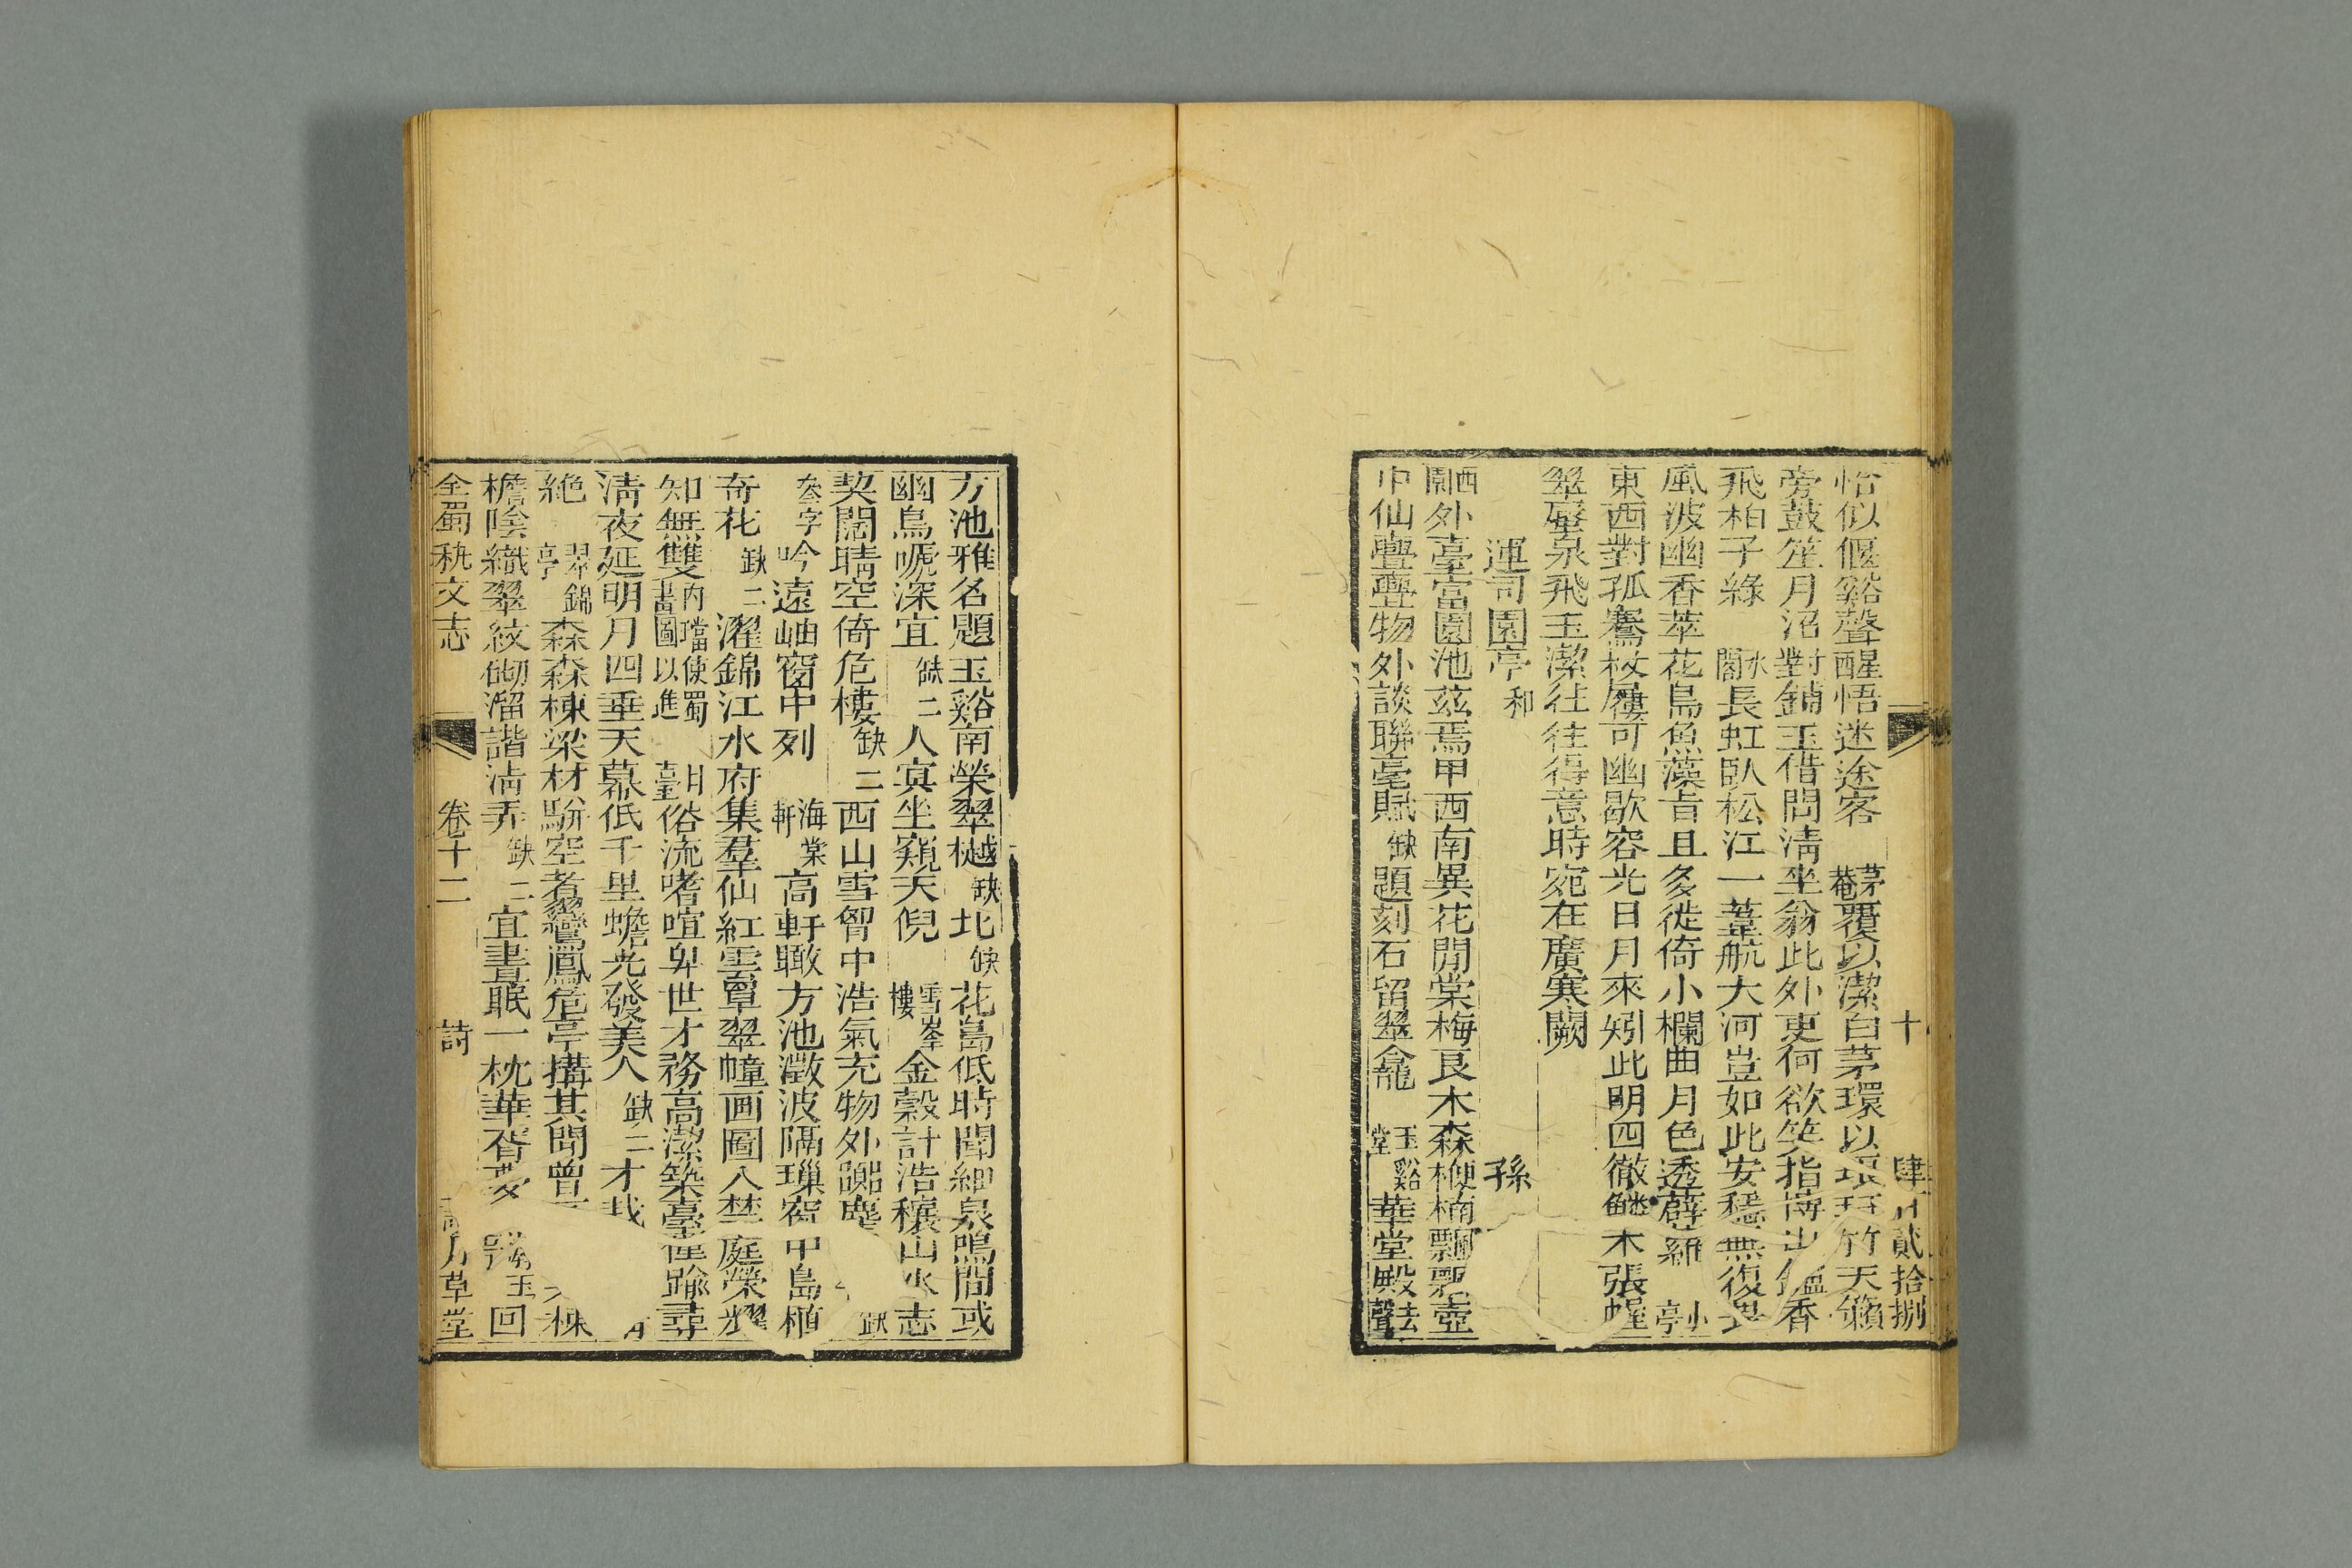 十 肆川貳拾捌
怡似偃谿聲醒悟迷途客 茅菴覆以潔白茅環以琅玕竹天籟
旁鼓笙月沼對鋪玉借問淸坐翁此外更何欲笑指博山鑪香
飛柏子綠 水閣長虹臥松江一葦航大河豈如此安穩無復畏
風波幽香萃花鳥魚藻占且多徙倚小欄曲月色透薜蘿 小亭
東西對孤騫杖屨可幽歇容光日月來矧此明四徹 木張幄
翠壓泉飛玉潔往往得意時宛在廣寒闕
運司園亭 和 孫
西園外臺富園池茲焉甲西南異花閒棠梅良木森楩楠飄飄壺
中仙亹亹物外談聯毫賦缺題刻石留翠龕 玉谿堂華堂殿去聲
方池雅名題玉谿南榮翠樾缺北缺花島低時聞細泉鳴間或
幽鳥嗁深宜缺二人寘坐窺天倪 雪峯樓金穀計浩穰山水志
契闊晴空倚危樓缺二西山雪智中浩氣充物外躑塵 缺
叅字吟遠岫窗中列 海棠軒高軒瞰方池澂波隔璅窗中島植
奇花缺二濯錦江水府集羣仙紅雲覃翠幢画圖入埜庭榮耀
知無雙內璫使蜀畫圖以進 月臺俗流嗜喧卑世才務高潔築臺 踰尋
淸夜延明月四垂天幕低千里蟾光發美人缺二才
絶 翠錦亭森森棟梁材騈空者鸞鳳危亭搆其間曾 棟
檐陰織翠紋砌溜諧淸弄缺二宜晝眠一枕華胥夢 玉 回
全蜀秇文志 卷十二 詩 月草堂